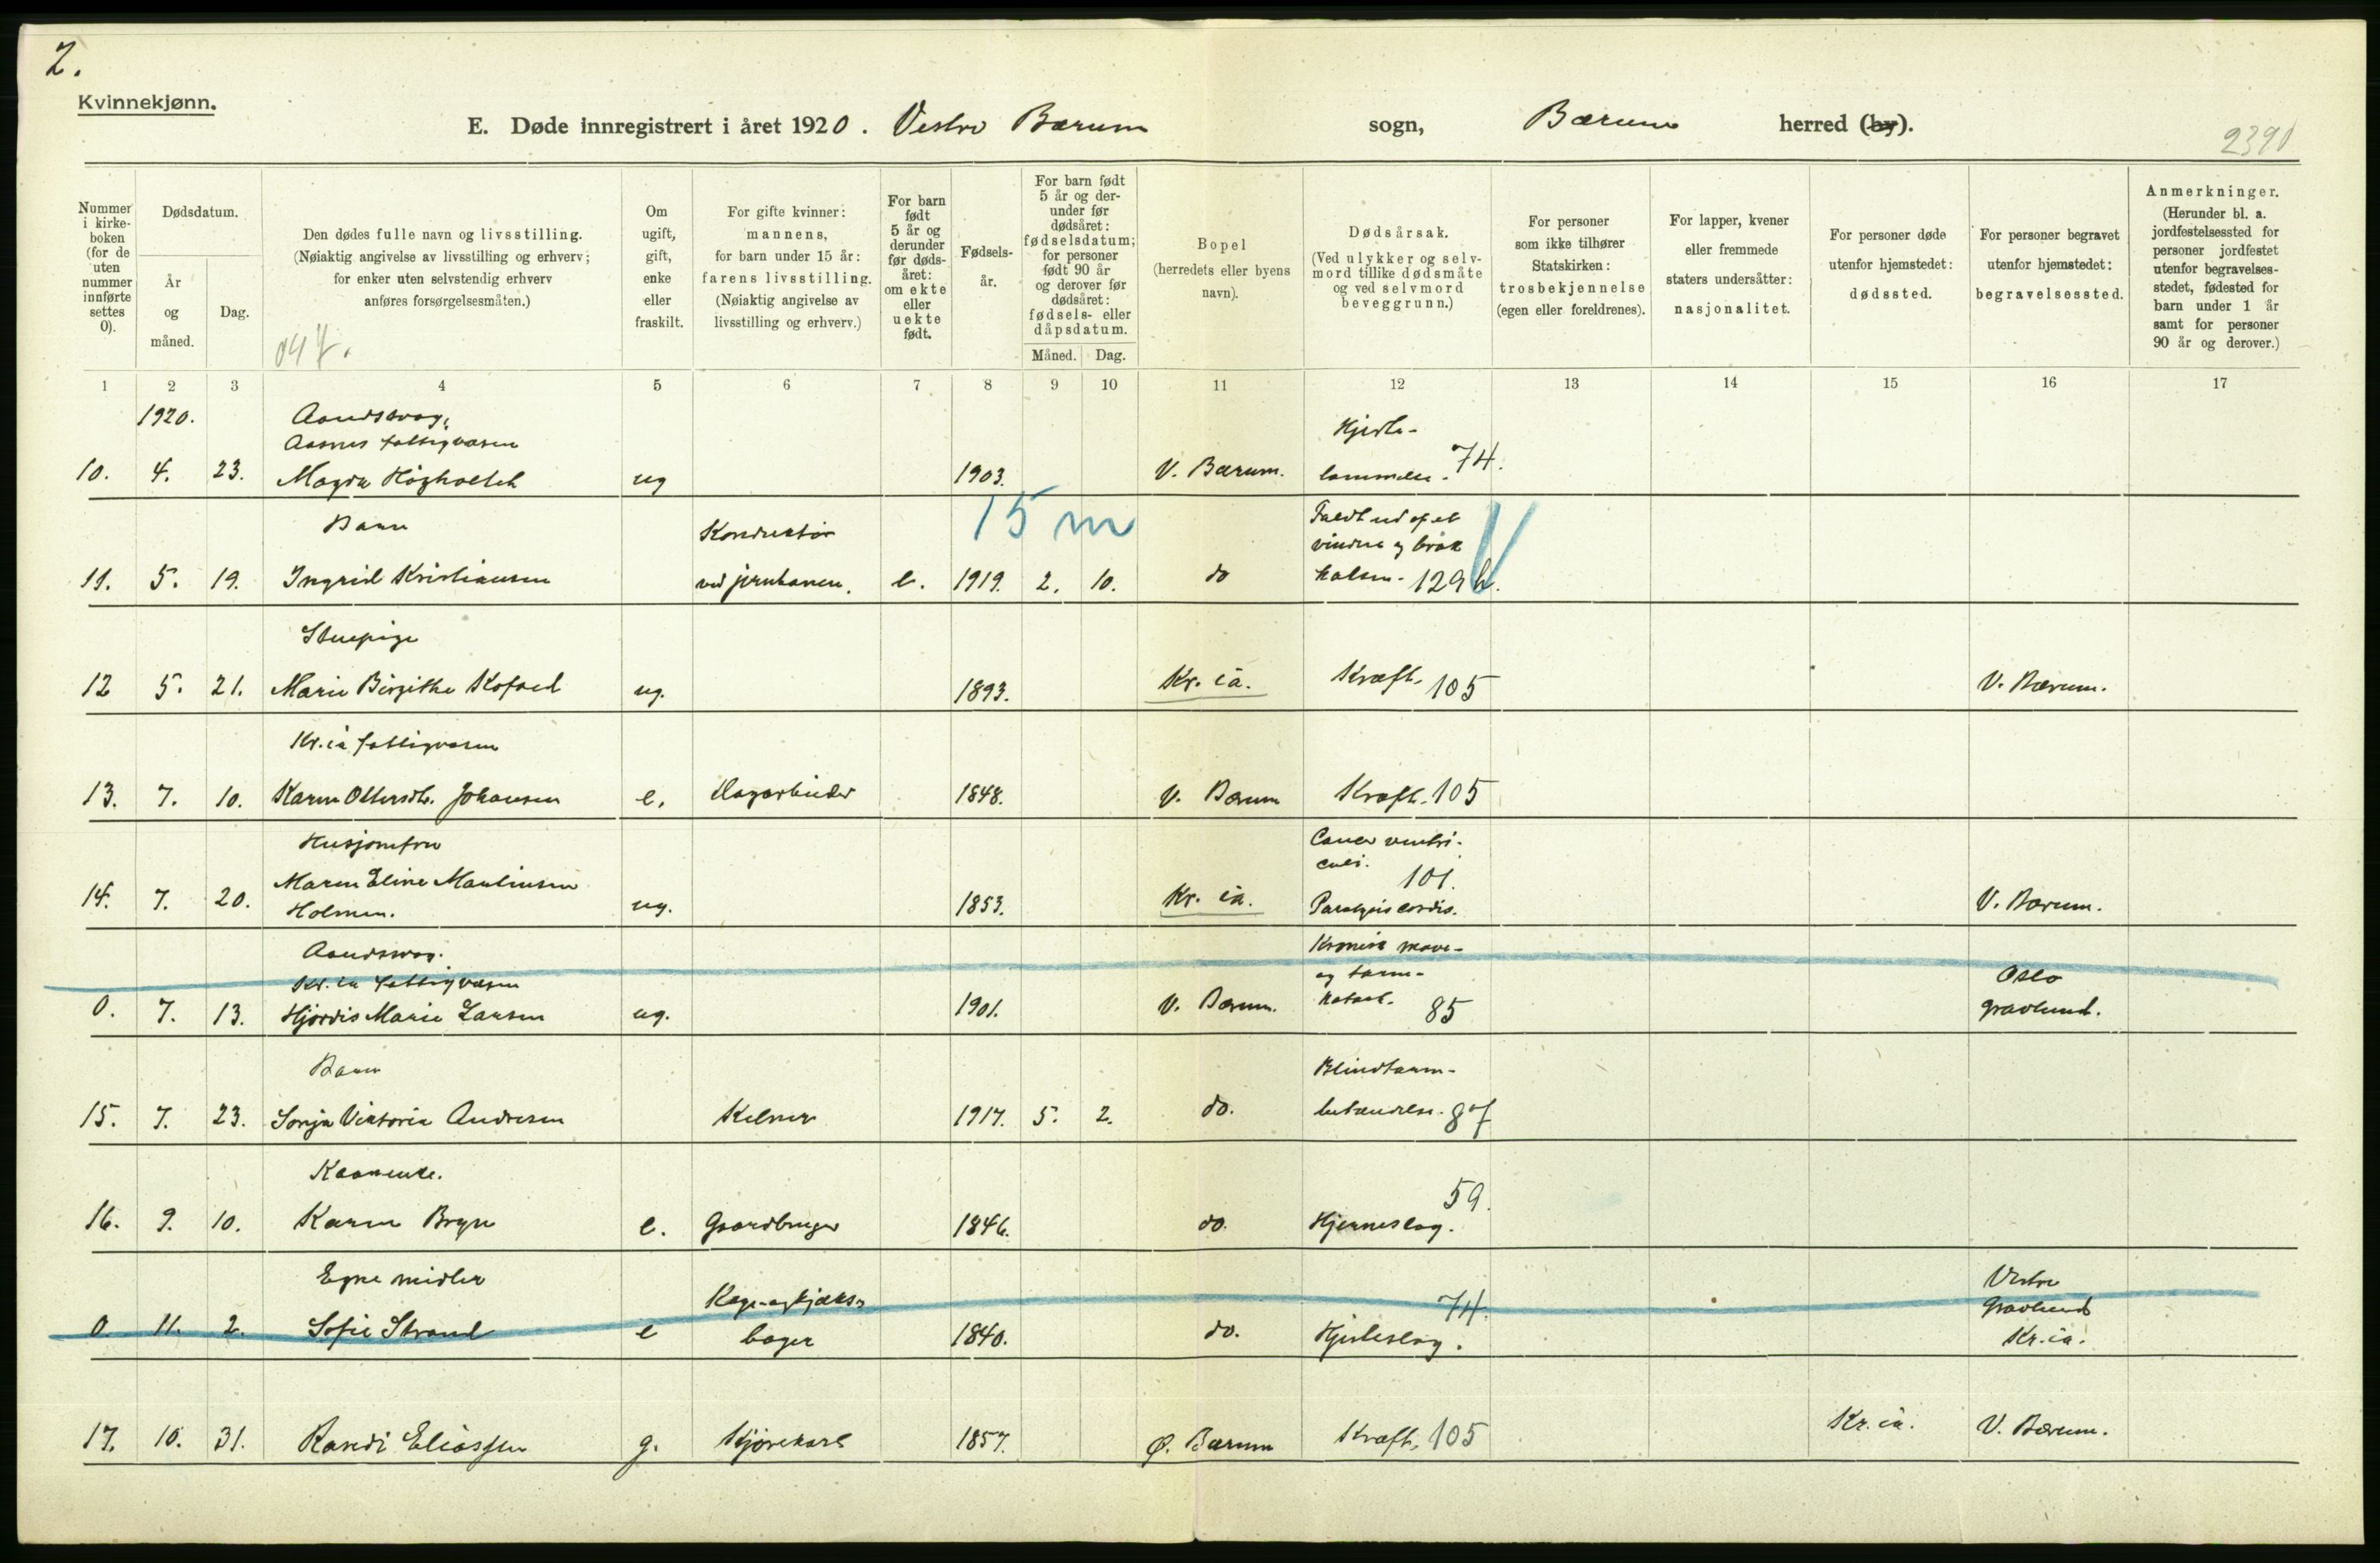 2.
Kvinnekjønn.
E. Døde innregistrert i året 1920. Vestre Bærum sogn, Bærum herred (by).
2390
Nummer i kirke-boken (for de uten nummer innførte settes 0).
Dødsdatum.
År og måned.
Dag.
Den dødes fulle navn og livsstilling.
(Nøiaktig angivelse av livsstilling og erhverv;
for enker uten selvstendig erhverv
anføres forsørgelsesmåten.)
Om ugift, gift, enke eller fraskilt.
For gifte kvinner: mannens, for barn under 15 år: farens livsstilling. (Nøiaktig angivelse av livsstilling og erhverv.)
For barn født 5 år og derunder før døds-året: om ekte eller uekte født.
Fødsels-år.
For barn født 5 år og der-under før dødsåret: fødselsdatum; for personer født 90 år og derover før dødsåret: fødsels- eller dåpsdatum.
Måned.
Dag.
Bopel (herredets eller byens navn).
Dødsårsak. (Ved ulykker og selv-mord tillike dødsmåte og ved selvmord beveggrunn.)
For personer som ikke tilhører Statskirken: trosbekjennelse (egen eller foreldrenes).
For lapper, kvener eller fremmede staters undersåtter: nasjonalitet.
For personer døde utenfor hjemstedet: dødssted.
For personer begravet utenfor hjemstedet: begravelsessted.
Anmerkninger. (Herunder bl. a. jordfestelsessted for personer jordfestet utenfor begravelses-stedet, fødested for barn under 1 år samt for personer 90 år og derover.)
1 2 3 4 5 6 7 8 9 10 11 12 13 14 15 16 17
1920. Aandssvag, Hjerte-
Aasnes fattigvæsen
10. 4. 23. Magda ug 1903. V. Bærum. lammelse. 74.
15 m
Barn Konduktør Faldt ud af et
vindu og brak
11. 5. 19. Ingrid Kristiansen ved jernbanen. e. 1919. 2. 10. do halsen. 129 b.
Stuepige
12 5. 21. Marie Birgithe Kofoed ug. 1893. Kr. ia. Kræft. 105 V. Bærum.
Kr.ia fattigvæsen
13. 7. 10. Karen Ottersdtr. Johansen e. Dagarbeider 1848. V. Bærum Kræft. 105
Husjomfru Cancer ventri-
culi. 101.
14. 7. 20. Maren Eline Mauliusen ug. 1853. Kr. ia. Paralysis cordis. V. Bærum.
Holmen.
Aandssvag. Kronisk mave-
Kr.ia fattigvæsen og tarm- Oslo
0. 7. 13. Hjørdis Marie Larsen ug. 1901. V. Bærum. katarh. 85 gravlund.
Barn Blindtarm-
15. 7. 23. Sonja Viktoria Andresen Kelner 1917. 5. 2. do. betændelse. 87
Kaarenke. 59.
16. 9. 10. Karen Bryn e. Gaardbruger 1846. do. Hjerneslag.
Egne midler Kage- og kjæks- Vestre
74. Gravlund
0. 11. 2. Sofie Strand e bager 1840. do. Hjerteslag. Kr.ia.
17. 10. 31. Randi Eliassen g. Kjørekarl 1857. Ø. Bærum Kræft, 105 Kr.ia. V. Bærum.